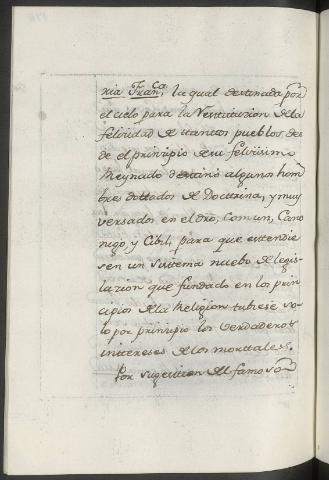 ria Fran,ca la qual destinada por
el cielo para la Restitucion de la
felicidad de ttanttos pueblos des
de el principio de su felicisimo
Reynado destinò algunos hom
bres dottados de Docttrina, y muy
versados en el dro, Comun, Cano
nigo, y Cibil, para que extendie
sen un sistema nuebo de legis
lazion que fundado en los prin
cipios de la Religion tubiese so
lo por principio los verdaderos
intereses de los morttales.
Por sugestion del famoso